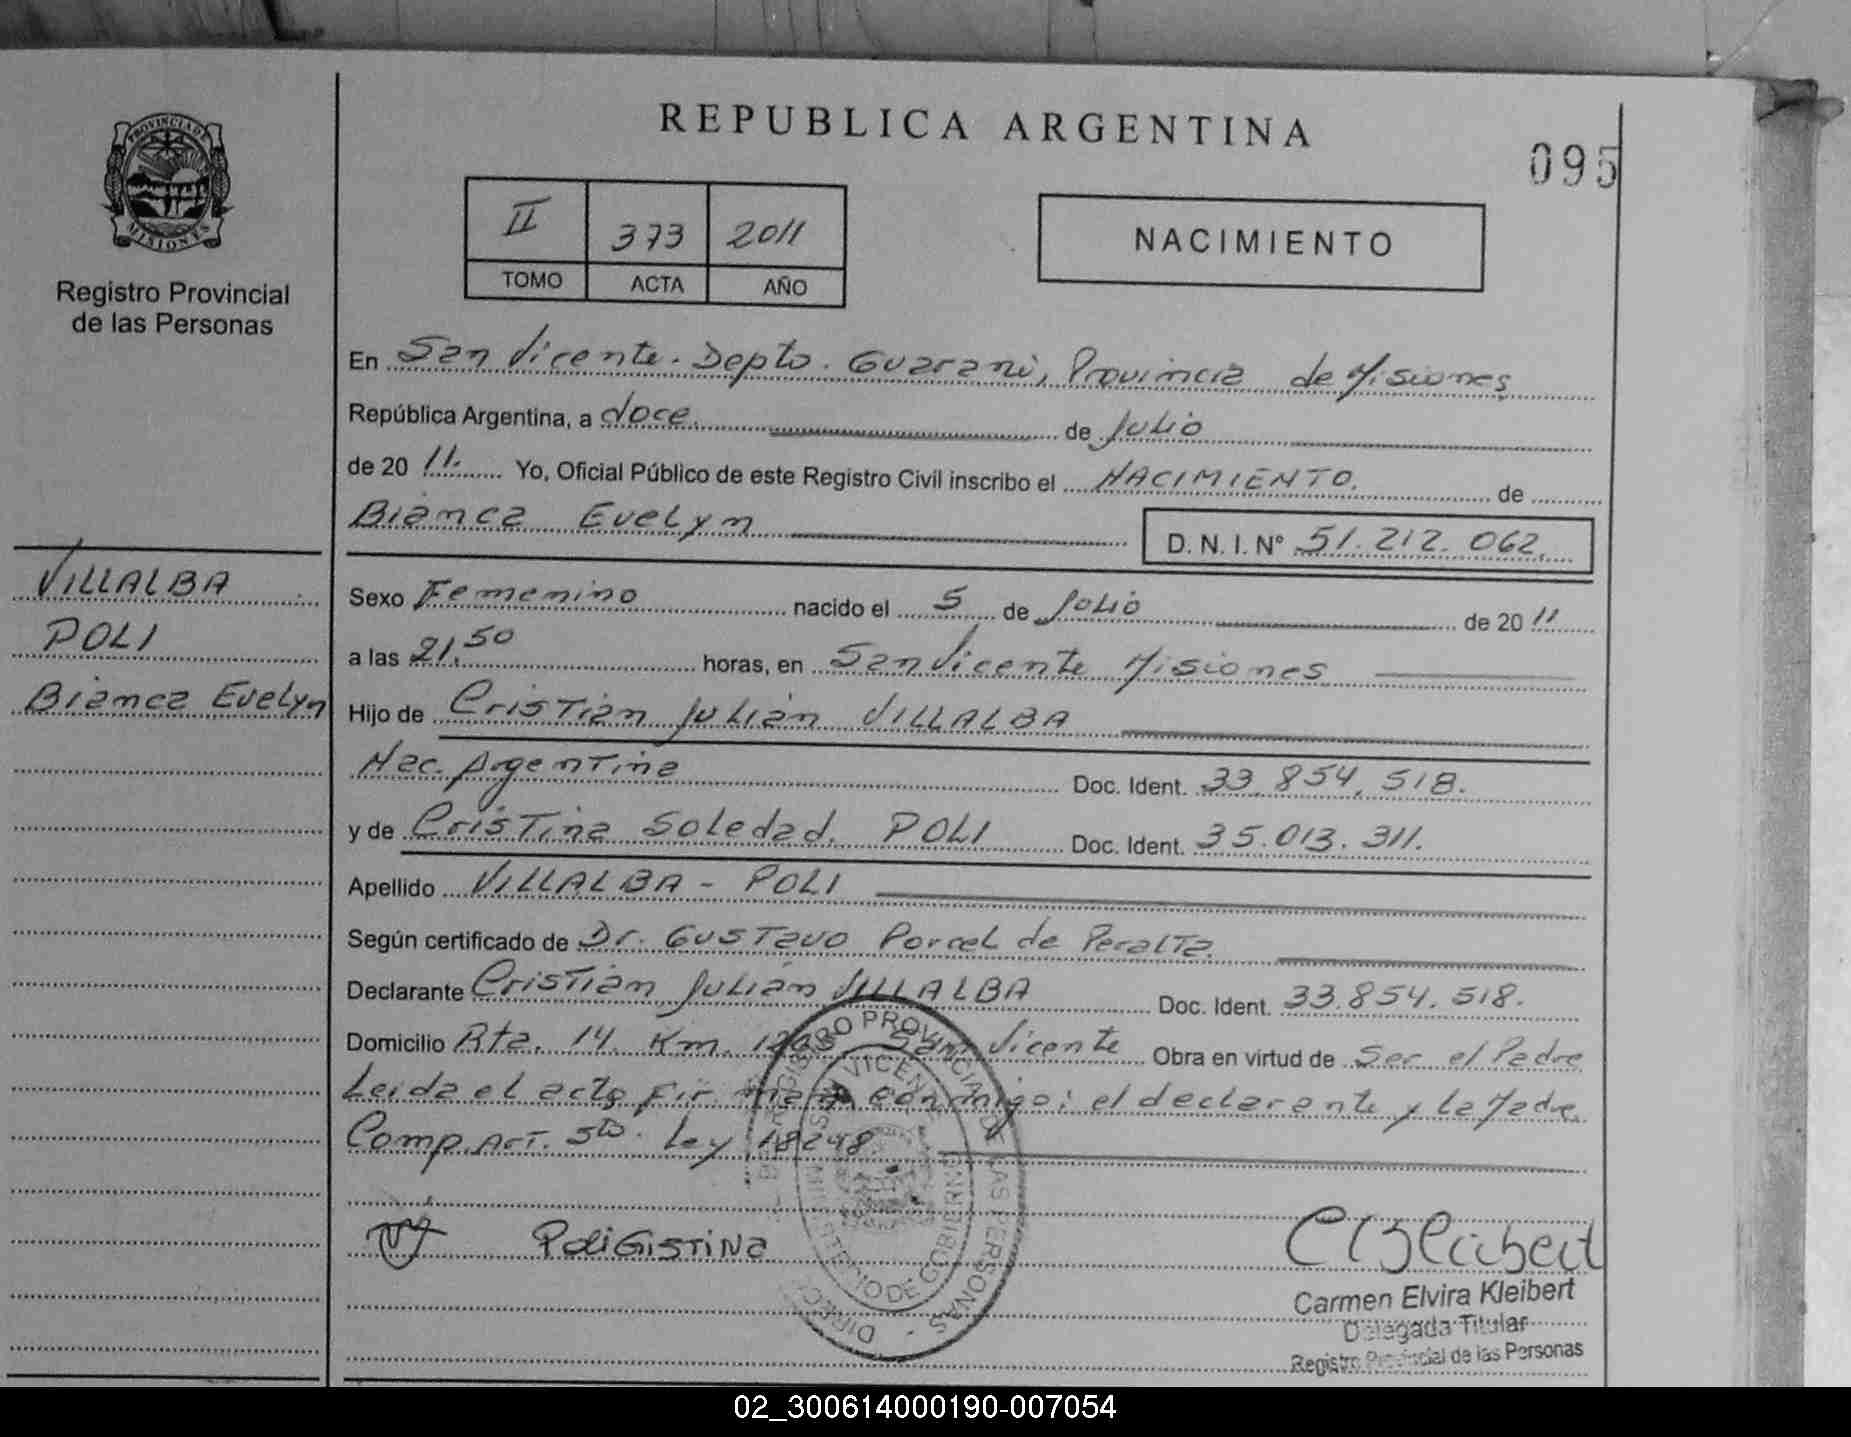 REPUBLICA ARGENTINA
095
PROVINCIA DE
MISIONES
Registro Provincial
de las Personas
II 373 2011
TOMO ACTA AÑO
NACIMIENTO
En San Vicente. Depto. Guarani, Provincia de Misiones
República Argentina, a doce. de Julio
de 20 11. Yo, Oficial Público de este Registro Civil inscribo el NACIMIENTO. de
Bianca Evelyn D. N. I. N° 51.212.062.
VILLALBA
POLI
Bianca Evelyn
Sexo Femenino nacido el 5 de Julio de 20 11
a las 21,50 horas, en San Vicente Misiones
Hijo de Cristian Julian VILLALBA
Nac. Argentina Doc. Ident. 33.854.518.
y de Cristina Soledad. POLI Doc. Ident. 35.013.311.
Apellido VILLALBA - POLI
Según certificado de Dr. Gustavo Porcel de Peralta.
Declarante Cristian Julian VILLALBA Doc. Ident. 33.854.518.
Domicilio Rta. 14. Km. San Vicente Obra en virtud de Ser el Padre
Leida el acta firman conmigo: el declarante y la Madre
Comp. Art. 5to. Ley 18248.
REGISTRO PROVINCIAL DE LAS PERSONAS
SAN VICENTE
MINISTERIO DE GOBIERNO
Poli Cristina
Carmen Elvira Kleibert
Delegada Titular
Registro Provincial de las Personas
02_300614000190-007054